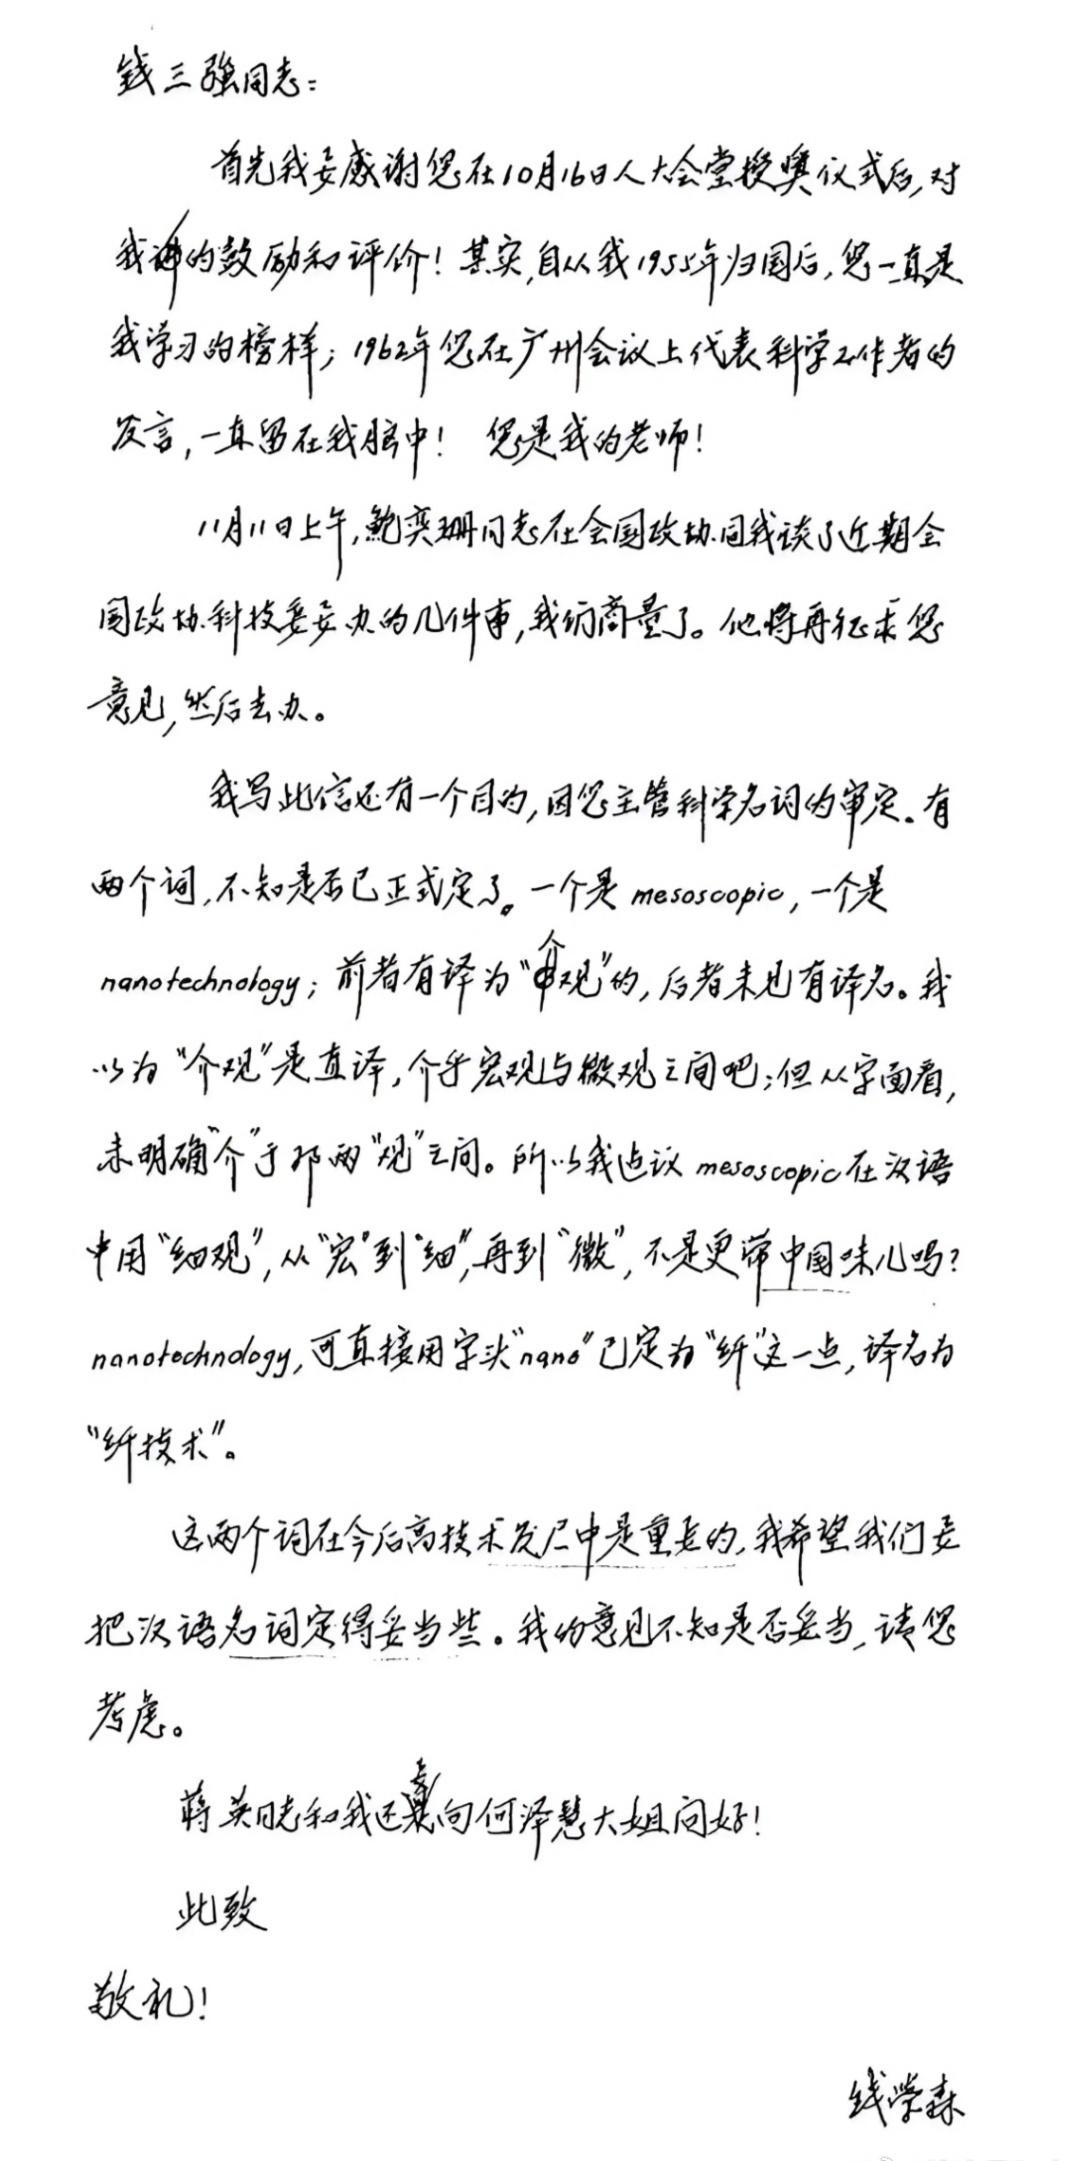 钱三强同志：
首先我要感谢您在10月16日人大会堂授奖仪式后，对
我的鼓励和评价！其实，自从我1955年归国后，您一直是
我学习的榜样；1962年您在广州会议上代表科学工作者的
发言，一直留在我脑中！ 您是我的老师！
11月11日上午，鲍奕珊同志在全国政协同我谈了近期全
国政协科技委要办的几件事，我们商量了。他将再征求您
意见，然后去办。
我写此信还有一个目的，因您主管科学名词的审定。有
两个词，不知是否已正式定了。一个是 mesoscopic，一个是
nanotechnology；前者有译为“介观”的，后者未见有译名。我
以为“介观”是直译，介乎宏观与微观之间吧；但从字面看，
未明确“介”于那两“观”之间。所以我建议 mesoscopic 在汉语
中用“细观”，从“宏”到“细”，再到“微”，不是更带中国味儿吗？
nanotechnology，可直接用字头“nano”已定为“纤”这一点，译名为
“纤技术”。
这两个词在今后高技术发展中是重要的，我希望我们要
把汉语名词定得妥当些。我的意见不知是否妥当，请您
考虑。
蒋英同志和我还要向何泽慧大姐问好！
此致
敬礼！
钱学森